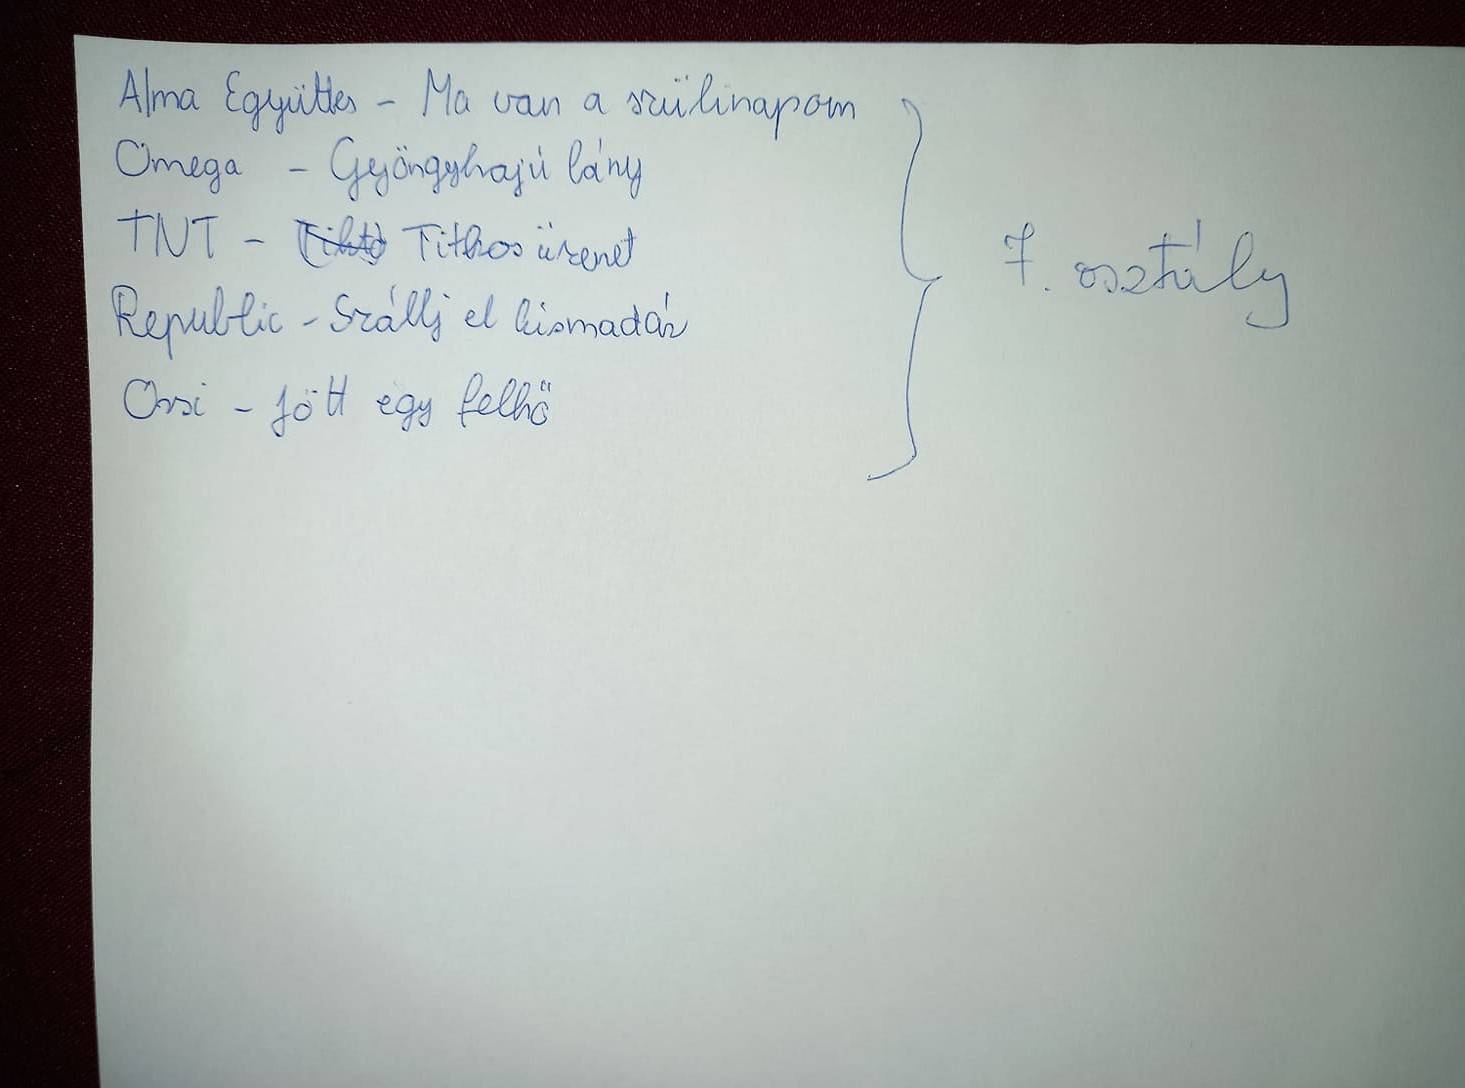 Alma Együttes - Ma van a szülinapom
Omega - Gyöngyhajú lány
TNT - Titkos üzenet
Republic - Szállj el kismadár
Ossi - Jött egy felhő
7. osztály